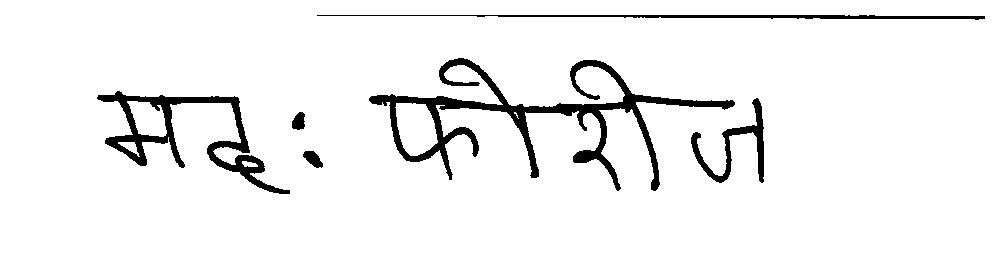 मद: फीरोज